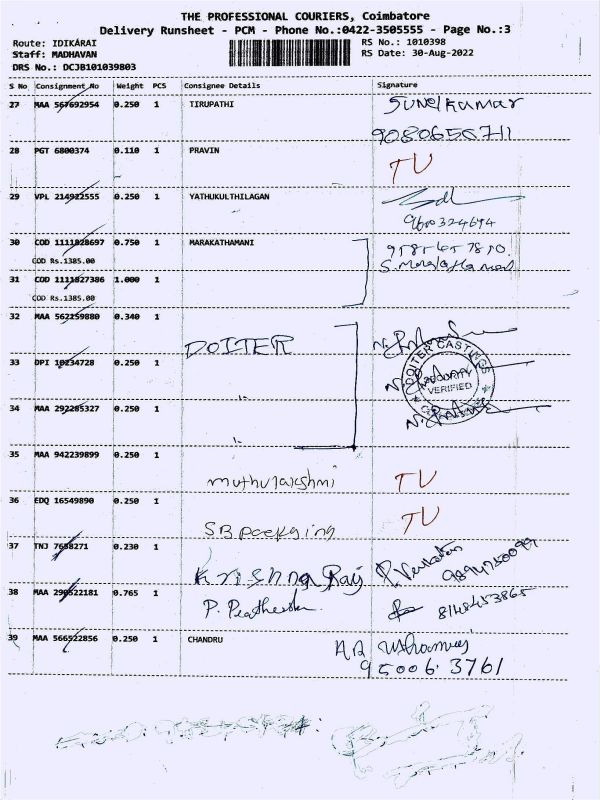 THE PROFESSIONAL COURIERS, Coimbatore
Delivery Runsheet - PCM - Phone No.:0422-3505555 - Page No.:3
Route: IDIKARAI RS No.: 1010398
Staff: MADHAVAN RS Date: 30-Aug-2022
DRS No.: DCJB101039803
S No Consignment No Weight PCS Consignee Details Signature
27 MAA 567692954 0.250 1 TIRUPATHI Sunelkumar
9080656711
28 PGT 6800374 0.110 1 PRAVIN TU
29 VPL 214922555 0.250 1 YATHUKULTHILAGAN
9600324694
30 COD 1111828697 0.750 1 MARAKATHAMANI
COD Rs.1385.00
31 COD 1111827386 1.000 1
COD Rs.1385.00
32 MAA 562159880 0.340 1
DOITER
DOITER CASTINGS
SECURITY
VERIFIED
33 DPI 10234728 0.250 1
34 MAA 292285327 0.250 1
35 MAA 942239899 0.250 1
muthulakshmi TU
36 EDQ 16549890 0.250 1
SB packging TU
37 TNJ 7698271 0.230 1
Krishna Raj P. Venkatan
9894750099
38 MAA 290522181 0.765 1
8148453865
39 MAA 566522856 0.250 1 CHANDRU
95006 3761